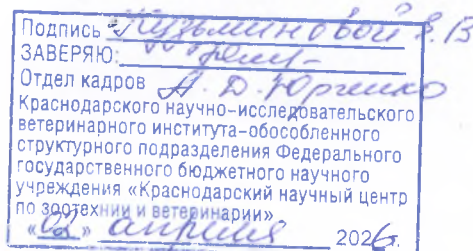 Подпись Кузьминовой Е.В
ЗАВЕРЯЮ:
Отдел кадров А. Д. Юрченко
Краснодарского научно-исследовательского
ветеринарного института-обособленного
структурного подразделения Федерального
государственного бюджетного научного
учреждения «Краснодарский научный центр
по зоотехнии и ветеринарии»
«02» апреля 2026.